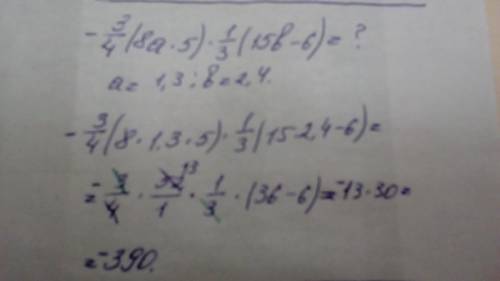 -3/4(8a·5)·1/3(15в-6)=?
a=1,3; в=2,4.
-3/4(8·1,3·5)·1/3(15·2,4-6)=
=-3/4·52 13/1·1/3·(36-6)=-13·30=
=-390.